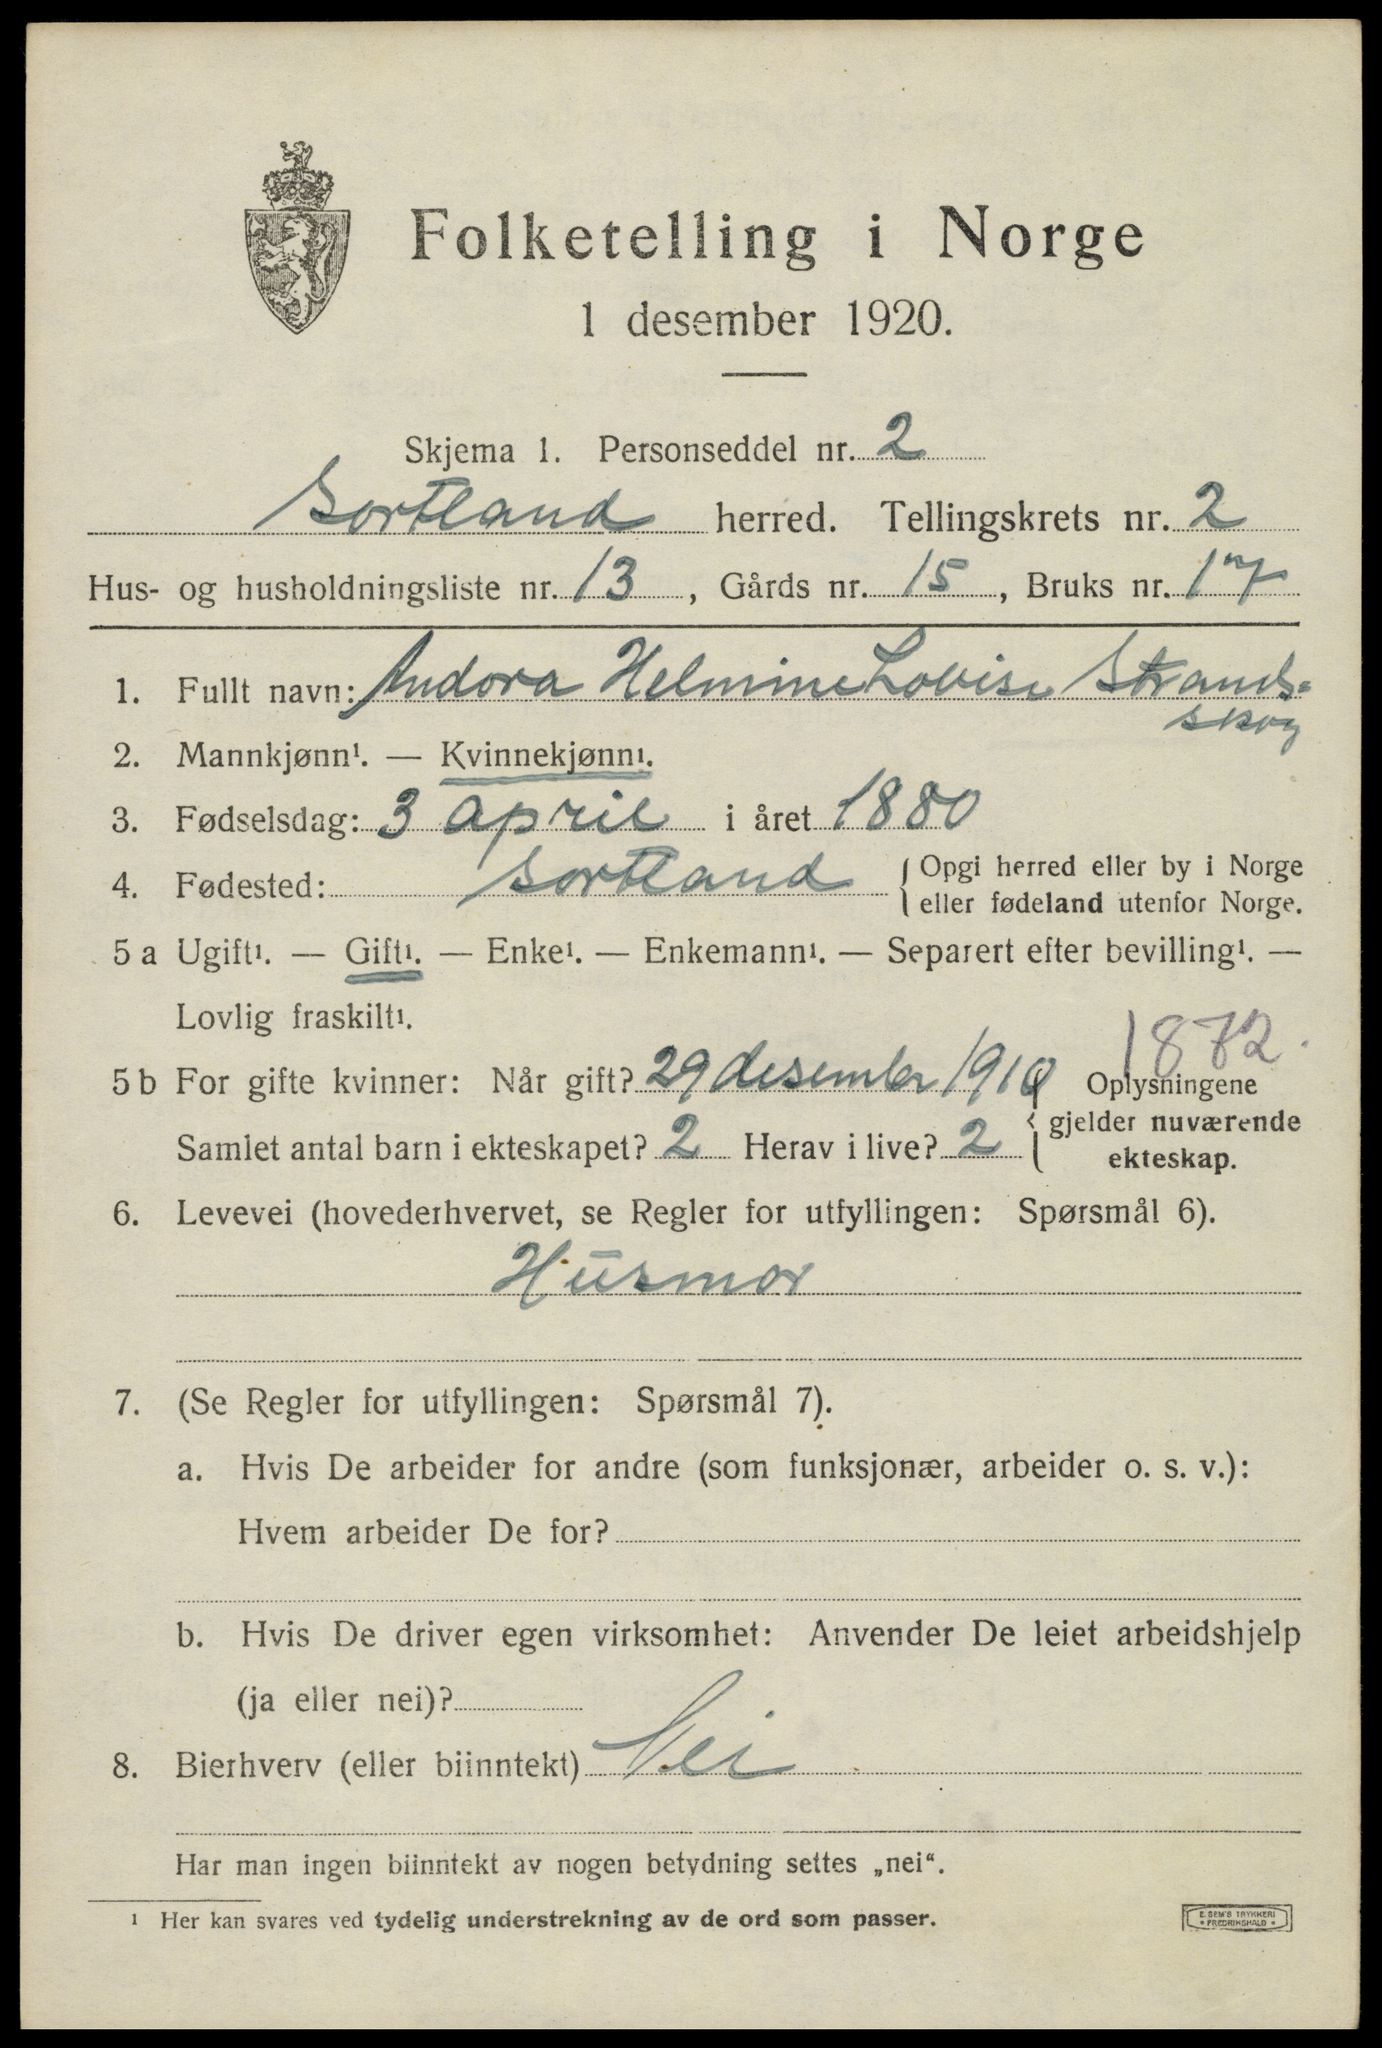 Folketelling i Norge
1 desember 1920.
Skjema 1. Personseddel nr. 2
Sortland herred. Tellingskrets nr. 2
Hus- og husholdningsliste nr. 13, Gårds nr. 15, Bruks nr. 17
1. Fullt navn: Andora Helmine Lovise Strands=
skog
2. Mannkjønn¹. — Kvinnekjønn¹.
3. Fødselsdag: 3 april i året 1880
4. Fødested: Sortland { Opgi herred eller by i Norge
eller fødeland utenfor Norge.
5 a Ugift¹. — Gift¹. — Enke¹. — Enkemann¹. — Separert efter bevilling¹. —
Lovlig fraskilt¹.
1872.
5 b For gifte kvinner: Når gift? 29 desember 1910 { Oplysningene
gjelder nuværende
Samlet antal barn i ekteskapet? 2 Herav i live? 2
ekteskap.
6. Levevei (hovederhvervet, se Regler for utfyllingen: Spørsmål 6).
Husmor
7. (Se Regler for utfyllingen: Spørsmål 7).
a. Hvis De arbeider for andre (som funksjonær, arbeider o. s. v.):
Hvem arbeider De for?
b. Hvis De driver egen virksomhet: Anvender De leiet arbeidshjelp
(ja eller nei)?
8. Bierhverv (eller biinntekt) Nei
Har man ingen biinntekt av nogen betydning settes „nei“.
¹ Her kan svares ved tydelig understrekning av de ord som passer.
E. SEM'S TRYKKERI
• FREDRIKSHALD •